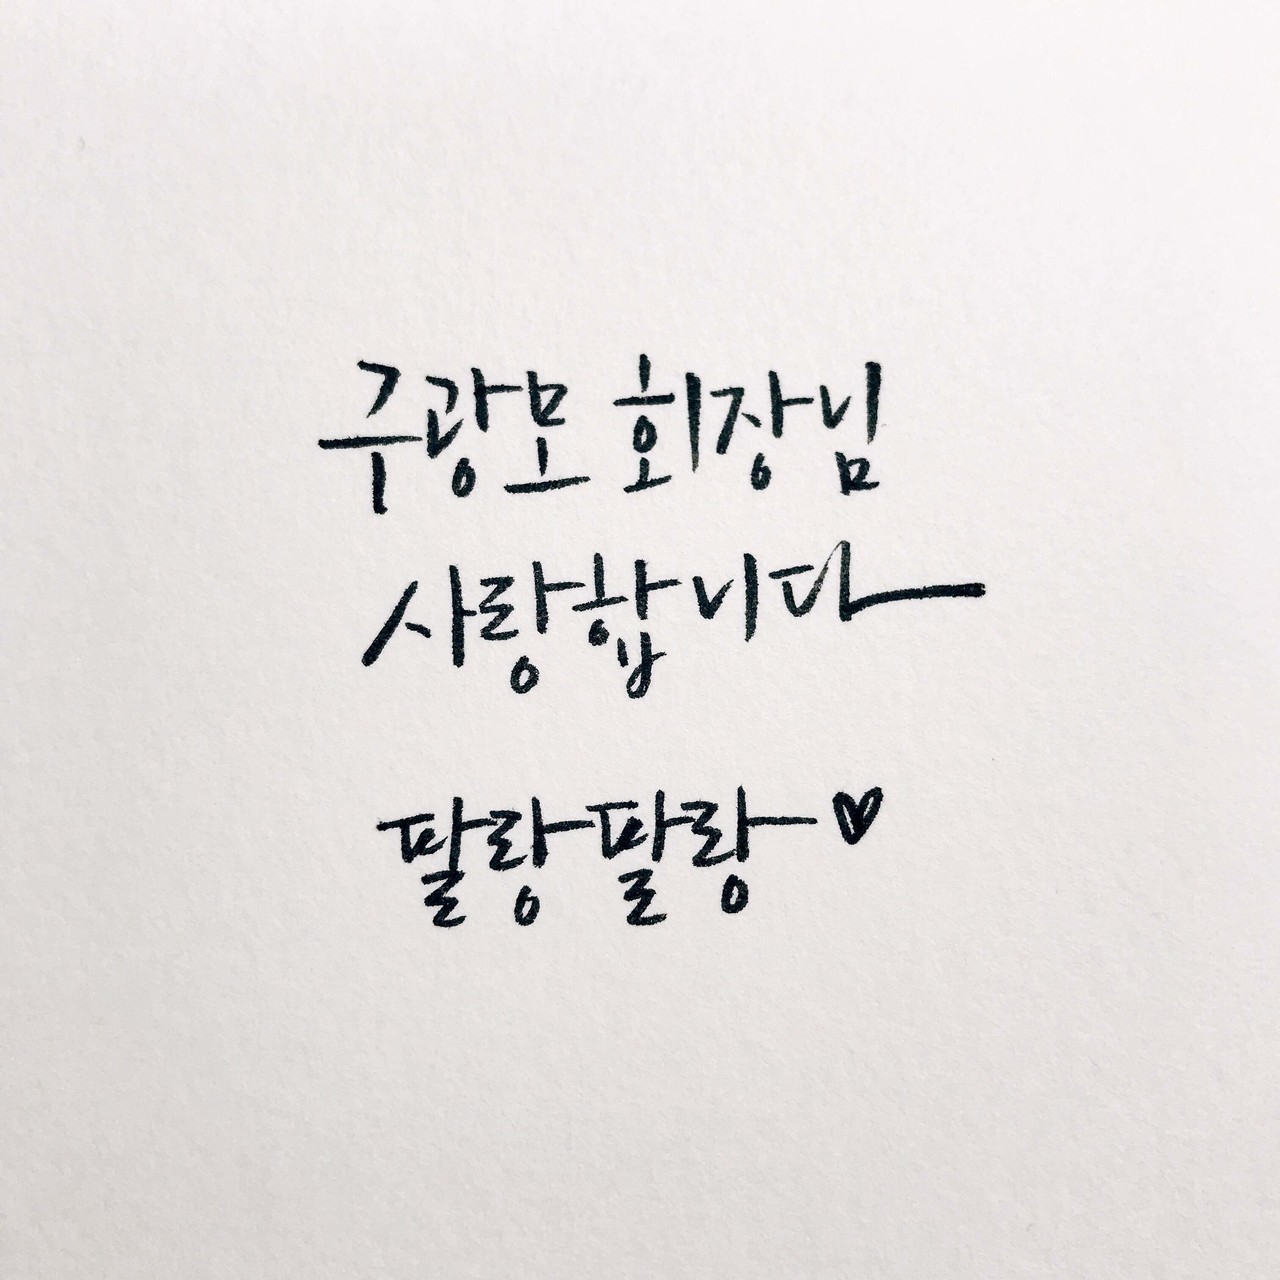 구광모 회장님
사랑합니다
팔랑팔랑♥